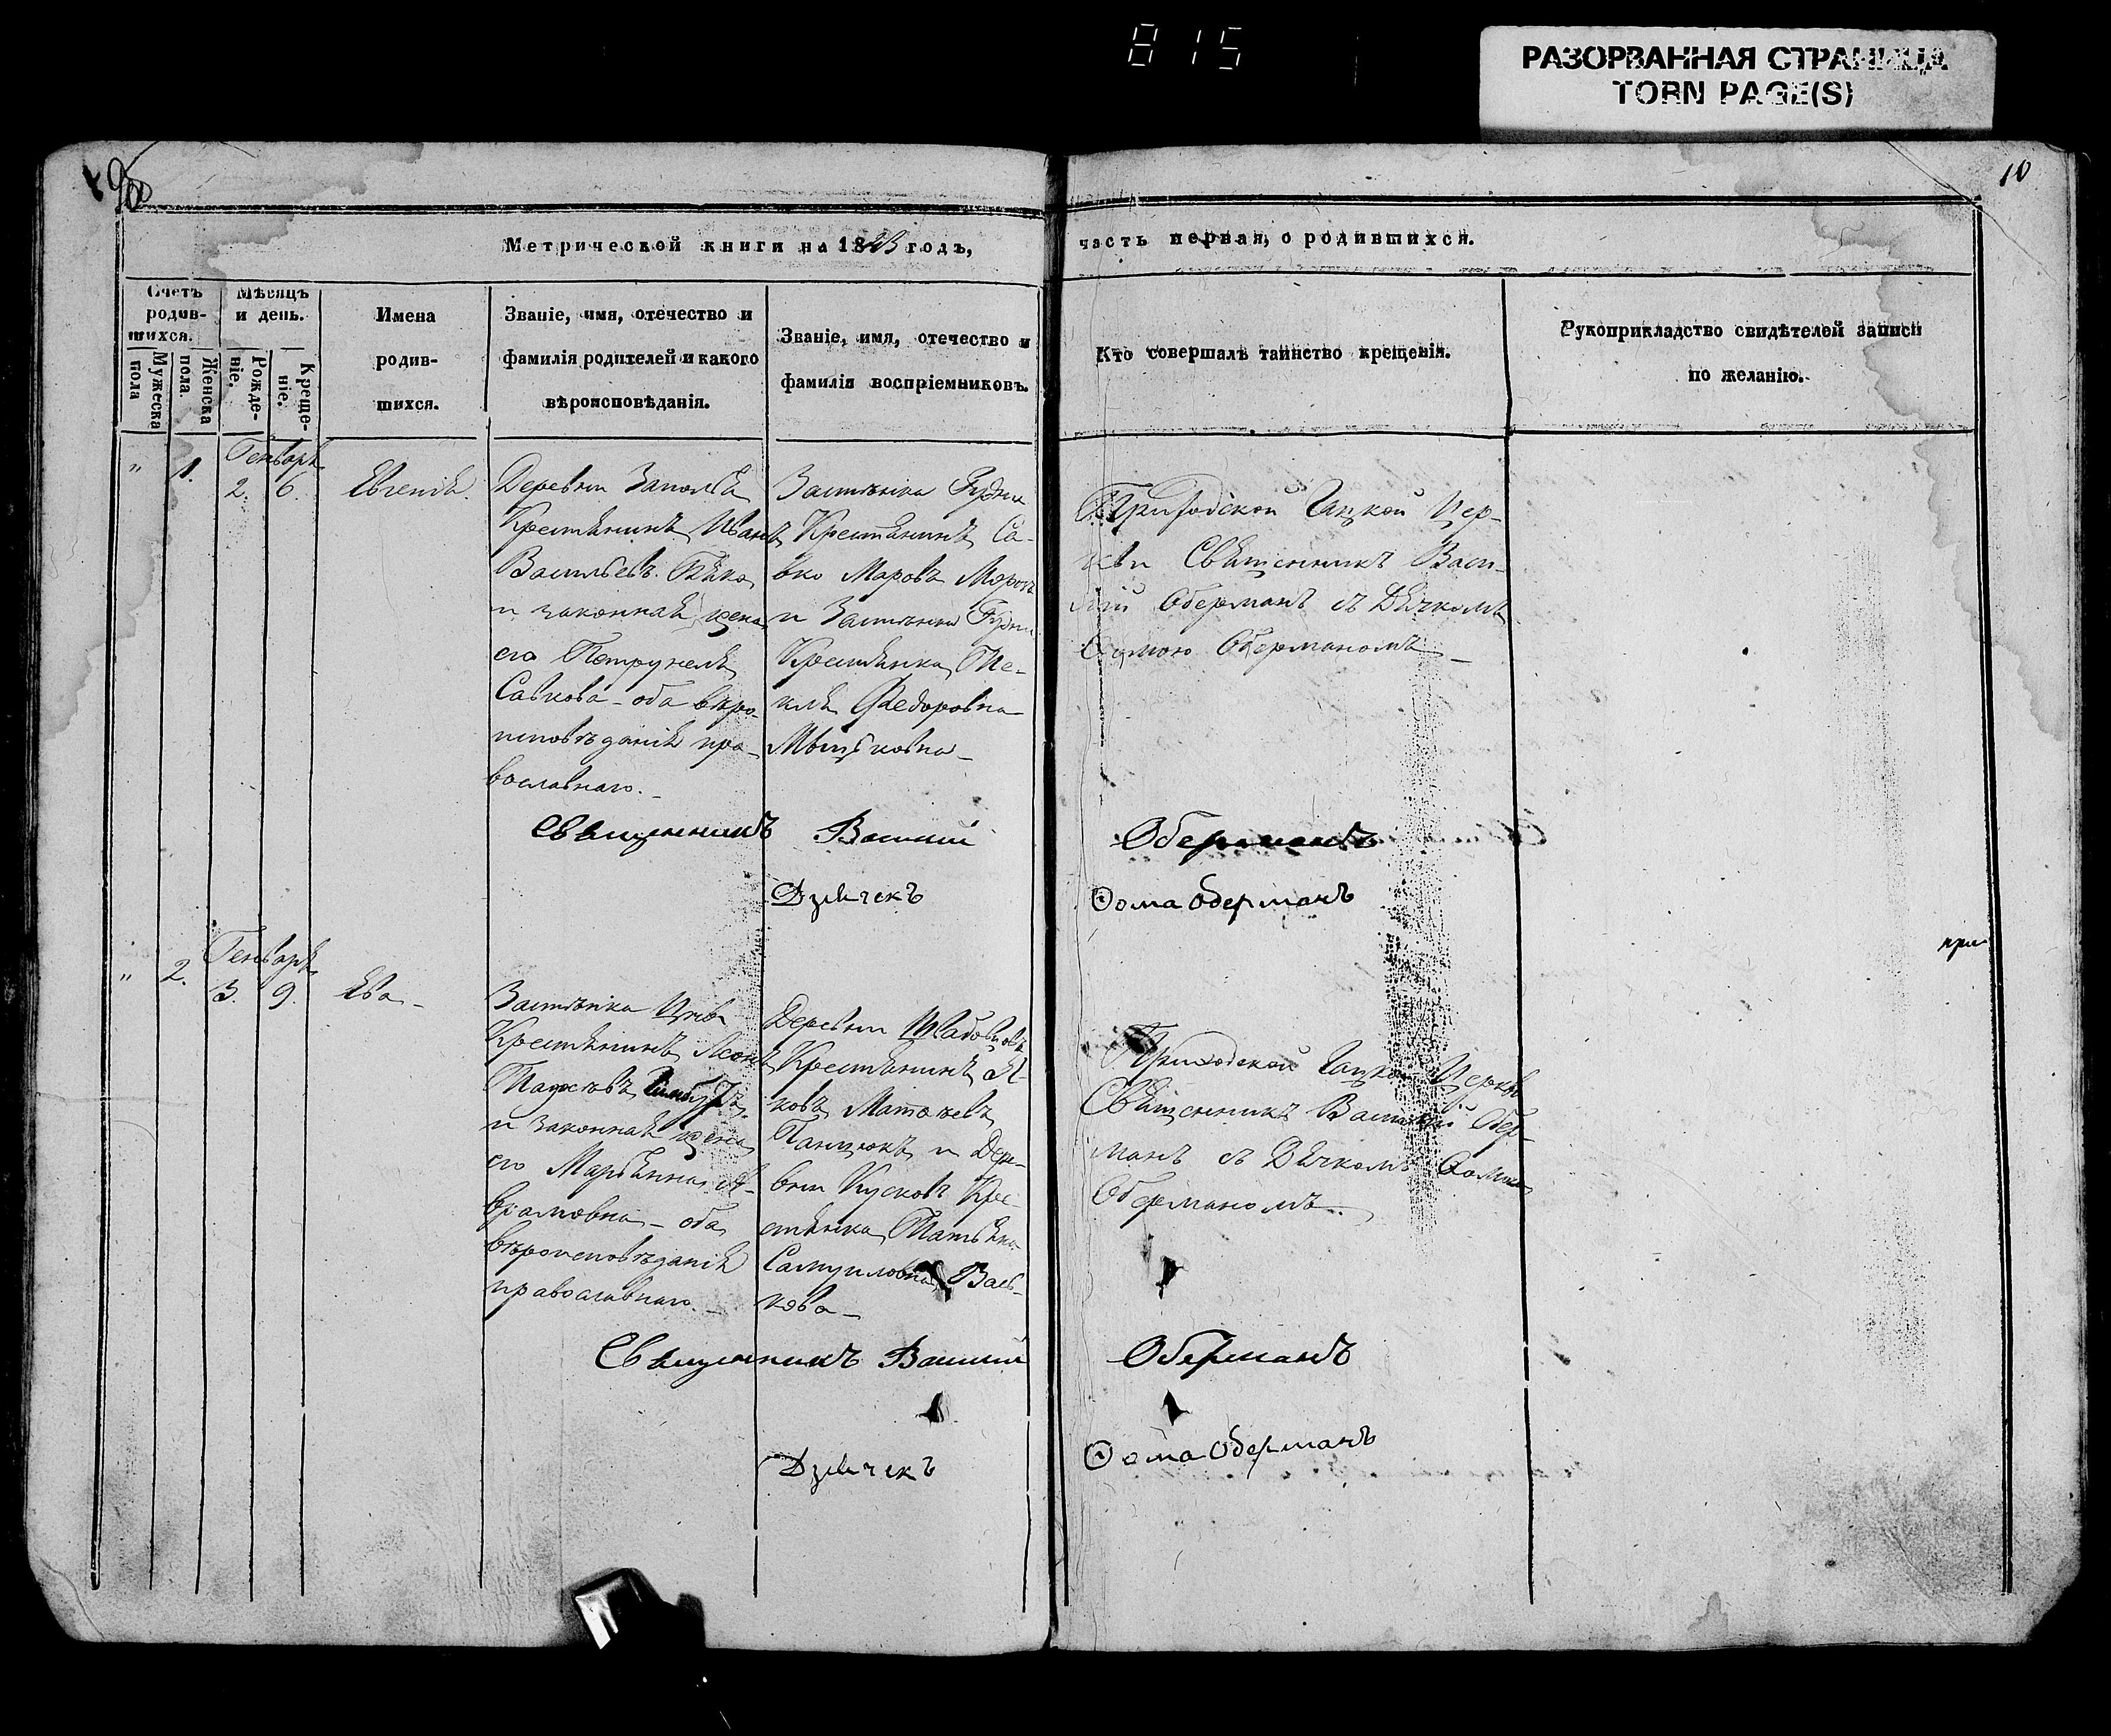 815
РАЗОРВАННАЯ СТРАНИЦА
TORN PAGE(S)
10
Метрической книги на 18 годъ,
часть первая, о родившихся.
Счетъ родив-шихся.
Мужеска пола
Женска пола.
Мѣсяцъ и день.
Рожде-ніе.
Креще-ніе.
Имена
родив-
шихся.
Званіе, имя, отечество и
фамилія родителей и какого
вѣроисповѣданія.
Званіе, имя, отечество и
фамилія воспріемниковъ.
Кто совершалъ таинство крещенія.
Рукоприкладство свидѣтелей записи
по желанію.
" 1.
Генваря
2. 6.
Евгенія.
Деревни Заполья
Крестьянинъ Иванъ
Васильевъ
и законная жена
его Петрунеля
Савкова - оба вѣро-
исповѣданія пра-
вославнаго.
Застѣнка
Крестьянинъ Са-
вко Марковъ
и Застѣнка
Крестьянка Те-
кля Федоровна
Приходской Церк-
ви Священникъ Васи-
лій Оберманъ съ Дьячкомъ
Ѳомою Оберманомъ
Священникъ Василий Оберманъ
Дзячекъ Ѳома Оберманъ
" 2.
Генваря
3. 9.
Ева
Застѣнка
Крестьянинъ
и законная жена
его Марьянна А-
врамовна - оба
вѣроисповѣданія
православнаго.
Деревни
Крестьянинъ Я-
ковъ
и Дере-
вни Кре-
стьянка Татьяна
Самуиловна Вась-
кова
при
Приходской Церкви
Священникъ Василій Обер-
манъ съ Дьячкомъ Ѳомою
Оберманомъ
Священникъ Василий Оберманъ
Дзячекъ Ѳома Оберманъ